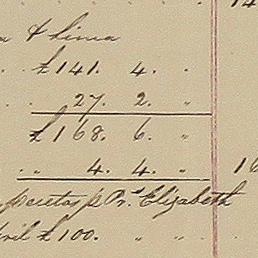 & Lima
£141. 4. "
27. 2. "
£168. 6. "
" 4. 4. " 16
pesetas p Pr. Elizabeth
April £100. " "